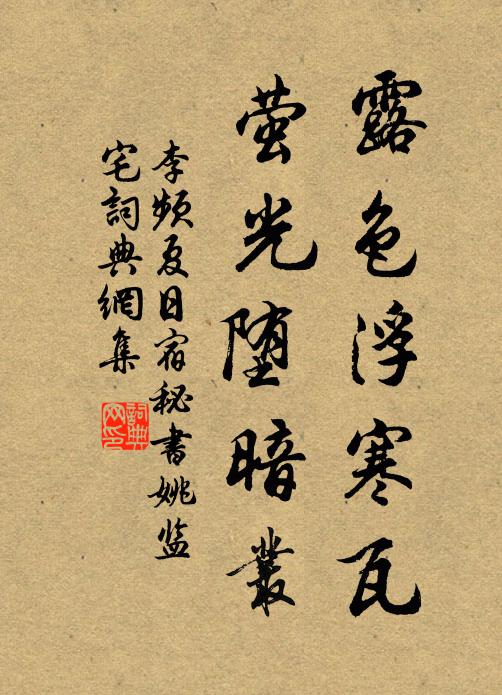 露色浮寒瓦
萤光堕暗叢
李频夏日宿秘書姚监
宅詞典網集
詞典網印